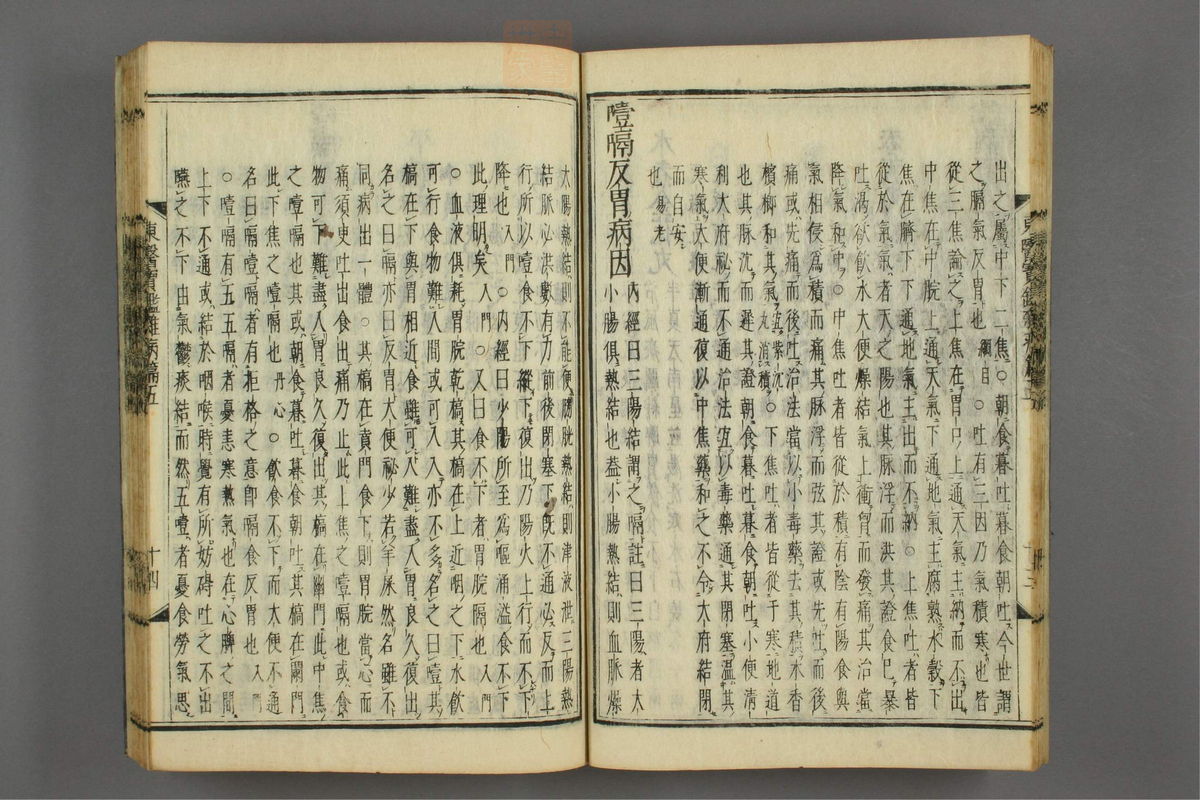 出之屬中下二焦○朝食暮吐暮食朝吐今世謂
之膈氣反胃也綱目○吐有三因乃氣積寒也皆
從三焦論之上焦在胃口上通天氣主納而不出
中焦在中脘上通天氣下通地氣主腐熟水穀下
焦在臍下下通地氣主出而不納○上焦吐者皆
從於氣氣者天之陽也其脈浮而洪其證食已暴
吐渴欲飮水大便燥結氣上衝胷而發痛其治當
降氣和中○中焦吐者皆從於積有陰有陽食與
氣相侵爲積而痛其脈浮而弦其證或先吐而後
痛或先痛而後吐治法當以小毒藥去其積木香
檳榔和其氣宜紫沉丸消積○下焦吐者皆從于寒地道
也其脈沈而遲其證朝食暮吐暮食朝吐小便清
利大府祕而不通治法宜以毒藥通其閉塞溫其
寒氣大便漸通復以中焦藥和之不令大府結閉
而自安
也易老
噎膈反胃病因
內經曰三陽結謂之隔註曰三陽者大
小腸俱熱結也盖小腸熱結則血脈燥
太陽熱結則不能便膀胱熱結則津液涸三陽熱
結脈必洪數有力前後閉塞下旣不通必反而上
行所以噎食不下縱下復出乃陽火上行而不下
降也入門○內經曰少陽所至爲嘔涌溢食不下
此理明矣入門○又曰食不下者胃脘隔也入門
○血液俱耗胃脘乾槁其槁在上近咽之下水飮
可行食物難入間或可入入亦不多名之曰噎其
槁在下與胃相近食雖可入難盡入胃良久復出
名之曰膈亦曰反胃大便祕少若羊屎然名雖不
同病出一體○其槁在賁門食下則胃脘當心而
痛須臾吐出食出痛乃止此上焦之噎膈也或食
物可下難盡入胃良久復出其槁在幽門此中焦
之噎膈也其或朝食暮吐暮食朝吐其槁在闌門
此下焦之噎膈也丹心○飮食不下而大便不通
名曰膈噎膈者有拒格之意卽膈食反胃也入門
○噎膈有五五膈者憂恚寒熱氣也在心脾之間
上下不通或結於咽喉時覺有所妨碍吐之不出
嚥之不下由氣鬱痰結而然五噎者憂食勞氣思
東醫寶鑑雜病篇五
十四